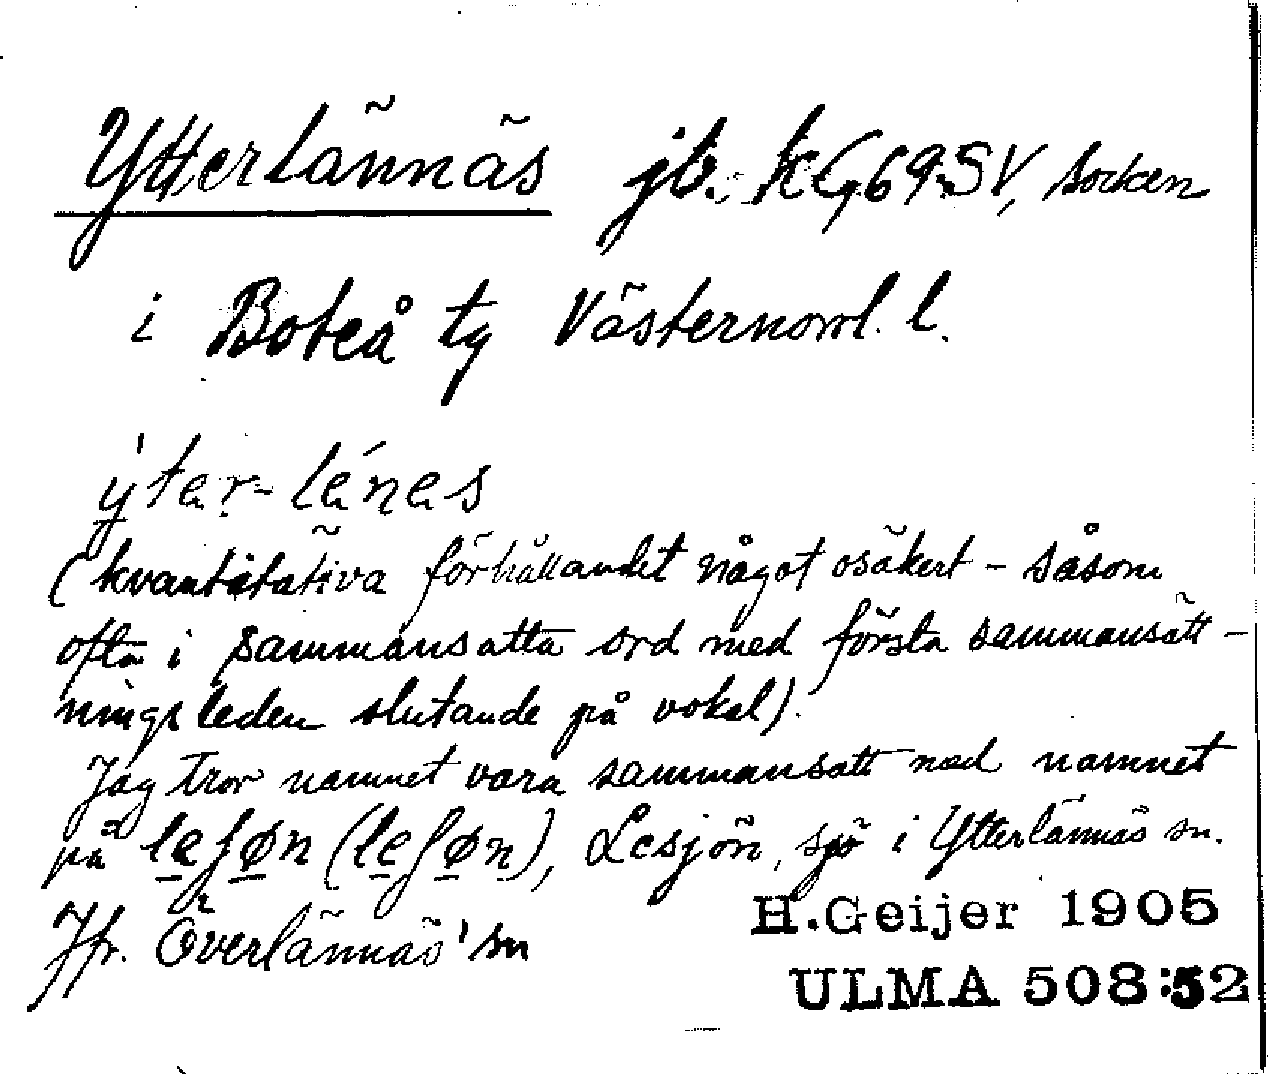 Ytterlännäs jb. kG,69.SV, socken
i Boteå tg Västernorrl. l.
yter-lénes
(kvantitativa förhållandet något osäkert - såsom
ofta i sammansatta ord med första sammansätt-
ningsleden slutande på vokal).
Jag tror namnet vara sammansatt med namnet
på leʃøn (leʃøn), Lesjön, sjö i Ytterlännäs sn.
Jfr. Överlännäs' sn
H.Geijer 1905
ULMA 508:52